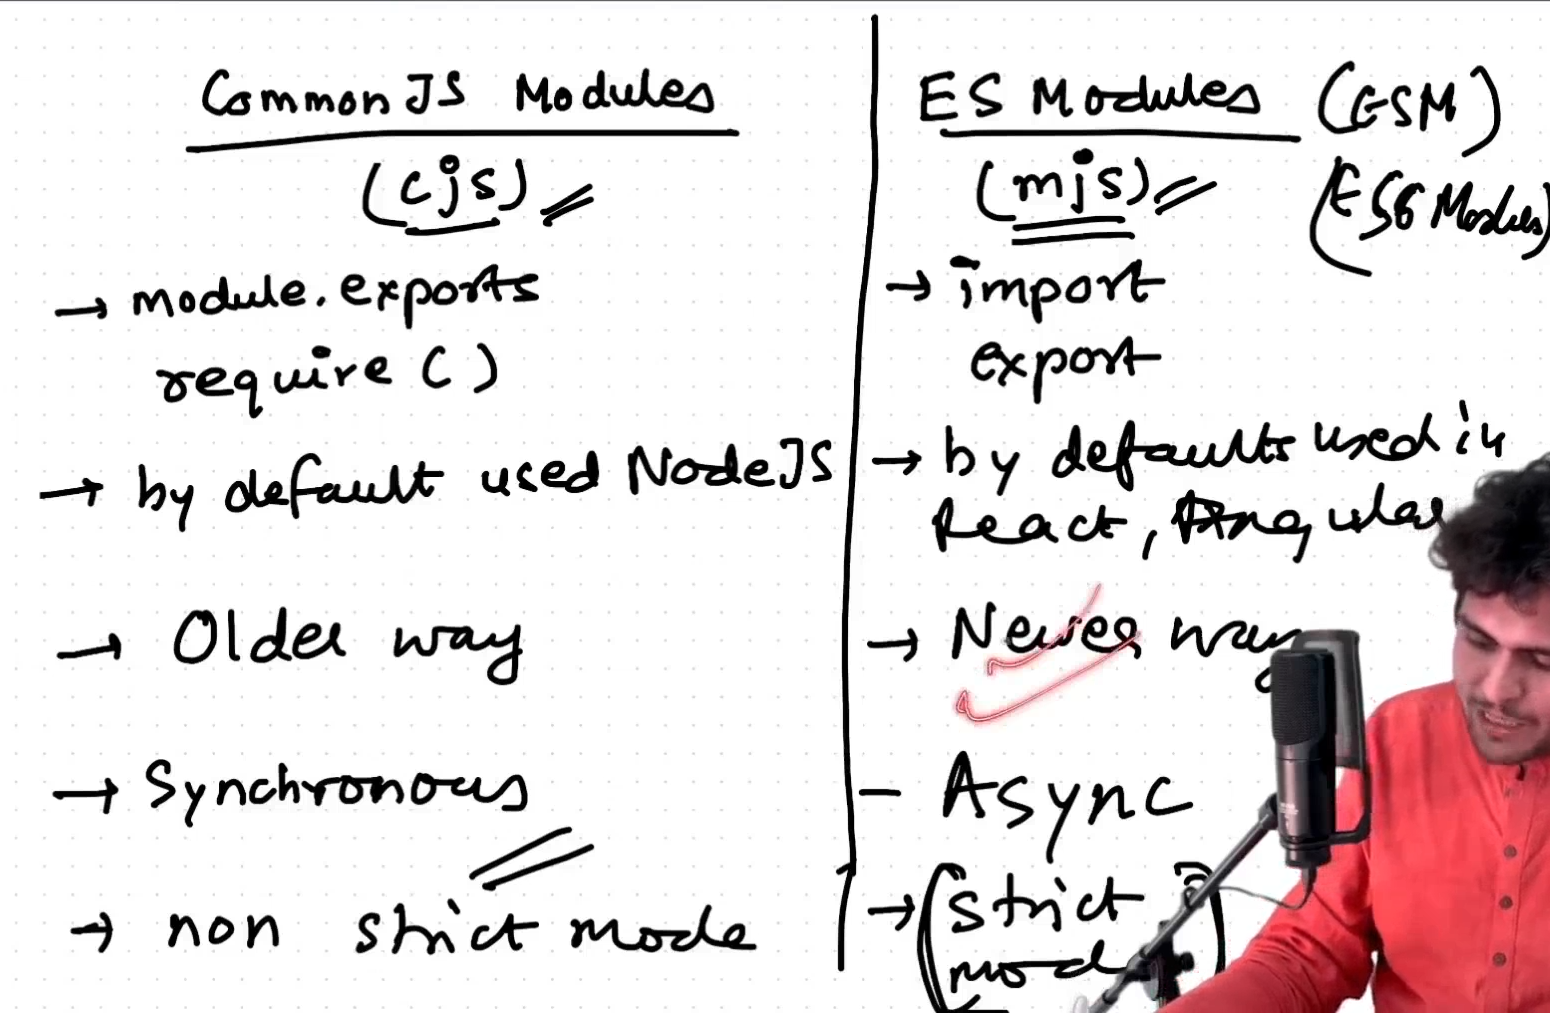 CommonJS Modules
(cjs)
→ module.exports
require ( )
→ by default used NodeJS
→ Older way
→ Synchronous
→ non strict mode
ES Modules (ESM)
(mjs) (ES6 Modules)
→ import
export
→ by defaults used in
React, Angular
→ Newer way
– Async
→ (strict
mode